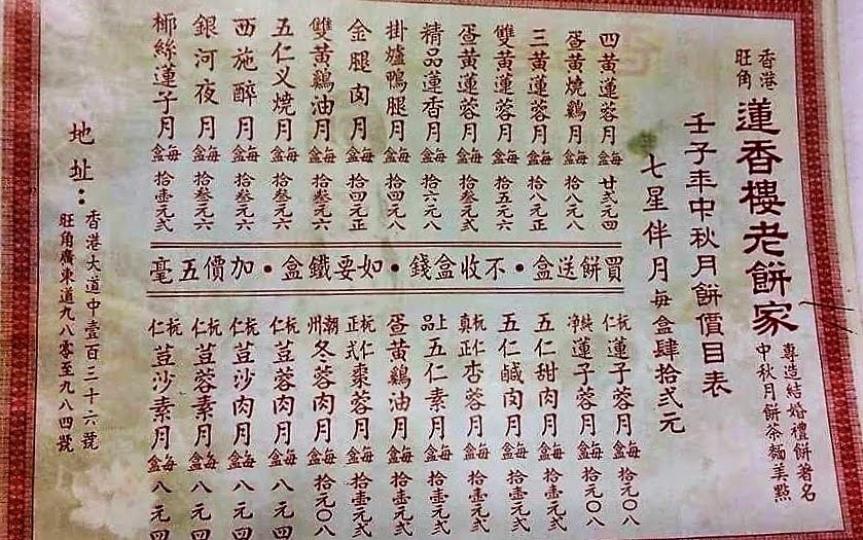 香港
旺角
蓮香樓老餅家
專造結婚禮餅著名
中秋月餅茶麵美點
壬子年中秋月餅價目表
七星伴月每盒肆拾弍元
四黃蓮蓉月每盒廿弍元四
蛋黃燒鷄月每盒拾八元八
三黃蓮蓉月每盒拾八元正
雙黃蓮蓉月每盒拾五元六
蛋黃蓮蓉月每盒拾叁元弍
精品蓮香月每盒拾六元八
掛爐鴨腿月每盒拾四元八
金腿肉月每盒拾四元正
雙黃鷄油月每盒拾叁元六
五仁义燒月每盒拾叁元六
西施醉月每盒拾叁元六
銀河夜月每盒拾叁元六
椰絲蓮子月每盒拾壹元弍
買餅送盒・不收盒錢・如要鐵盒・加價五毫
杬仁蓮子蓉月每盒拾元〇八
純淨蓮子蓉月每盒拾元〇八
五仁甜肉月每盒拾壹元弍
五仁鹹肉月每盒拾壹元弍
杬仁真正杏蓉月每盒拾壹元弍
上品五仁素月每盒拾壹元弍
蛋黃鷄油月每盒拾壹元弍
杬仁正式棗蓉月每盒拾壹元弍
潮州冬蓉肉月每盒拾元〇八
杬仁荳蓉肉月每盒八元四
杬仁荳沙肉月每盒八元四
杬仁荳蓉素月每盒八元四
杬仁荳沙素月每盒八元四
地址：
香港大道中壹百三十六號
旺角廣東道九八零至九八四號